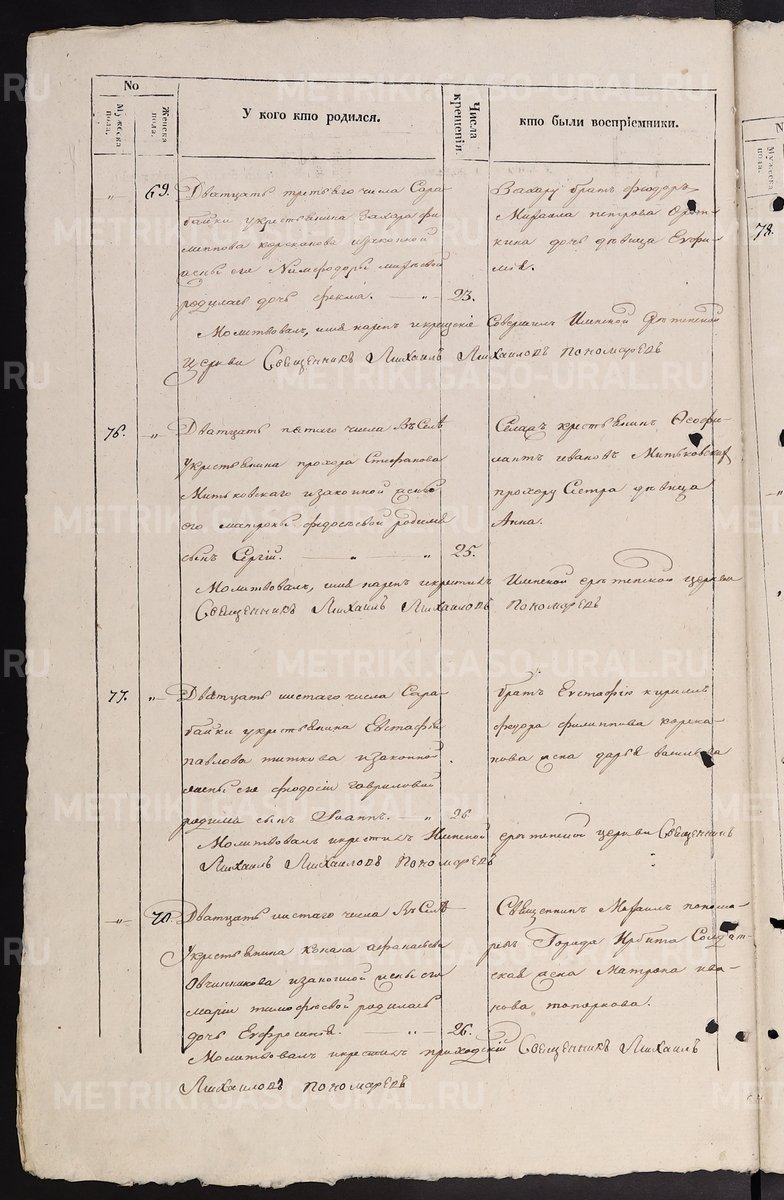 No
Мужеска пола.
Женска пола.
У кого кто родился.
Числа крещенія.
кто были воспріемники.
69. Дватцать третьяго числа Сара-
байки у крестьянина Захара фи-
липпова карсканова изаконной
жены его Нимфодоры
родилась дочь фекла. — „ — 23.
Захару братъ феодоръ
Михаила петрова
кина дочь дѣвица Евфи-
мія.
Молитвовалъ, имя нарекъ и крещеніе Совершилъ Ипенской Срѣтенской
церкви Священникъ Михаилъ Михаиловъ Пономаревъ
76. „ Дватцать пятаго числа Въ Селѣ
у крестьянина прохора Стефанова
Митьковскаго изаконной жены
его матроны федосѣевой родился
сынъ Сергій. „ „ 25.
Селахъ крестьянинъ Феофи-
лактъ ивановъ Митьковскій
прохору Сестра дѣвица
Анна.
Молитвовалъ, имя нарекъ и крестилъ Ипенской срѣтенской церкви
Священникъ Михаилъ Михаиловъ Пономаревъ
77. „ Дватцать шестаго числа Сара-
байки у крестьянина Евстафія
павлова титкова изаконной
жены его феодосіи Гавриловой
родился сынъ Іоаннъ. — „ 26
братъ Евстафію кирилъ
федора филиппова карска-
нова жена дарья васильева
Молитвовалъ и крестилъ Ипенской срѣтенской церкви Священникъ
Михаилъ Михаиловъ Пономаревъ
„ 70. Дватцать шестаго числа Въ Селѣ
У крестьянина конана афанасьева
Овчинникова изаконной жены его
маріи тимофѣевой родилась
дочь Евфросинія. — „ — 26.
Священникъ Михаилъ понома-
ревъ Города Ирбита Солдат-
ская жена Матрона ива-
нова топоркова.
Молитвовалъ и крестилъ приходскій Священникъ Михаилъ
Михаиловъ Пономаревъ
78.
METRIKI.GASO-URAL.RU